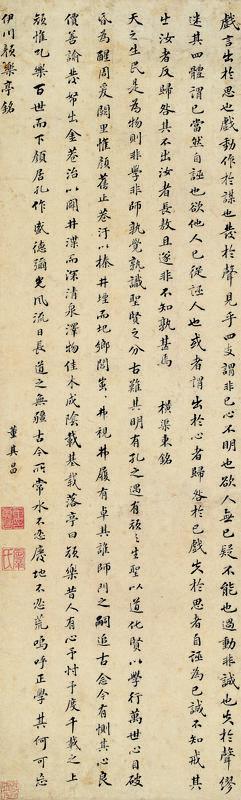 戲言出於思也戲動作於謀也發於聲見乎四支謂非己心不明也欲人無己疑不能也過動非誠也失於聲繆
迷其四體謂己當然自誣也欲他人己從誣人也或者謂出於心者歸咎於己戲失於思者自誣為己誠不知戒其
出汝者反歸咎其不出汝者長敖且遂非不知孰甚焉 橫渠東銘
天之生民是為物則非學非師孰覺孰識聖賢之分古難其明有孔之遇有顏之生聖以道化賢以學行萬世心目破
昏為醒周爰闕里惟顏舊止巷汙以榛井堙而圮鄉閭蚩蚩弗視弗履有卓其誰師門之嗣追古念今有惻其心良
價善諭發帑出金巷治以闢井渫而深清泉澤物佳木成陰載基載落亭曰顏樂昔人有心予忖予度千載之上
顏惟孔樂百世而下顏居孔作盛德彌光風流日長道之無疆古今所常水不忍廢地不忍荒嗚呼正學其何可忘
伊川顏樂亭銘
董其昌